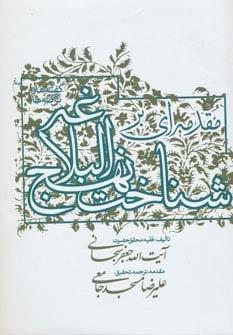 گفتارها و نکته‌ها
مقدمه‌ای بر
شناخت نهج البلاغه
تألیف: فقیه محقق حضرت
آیت الله جعفر سبحانی
مقدمه، ترجمه، تحقیق:
علیرضا مسجدجامعی